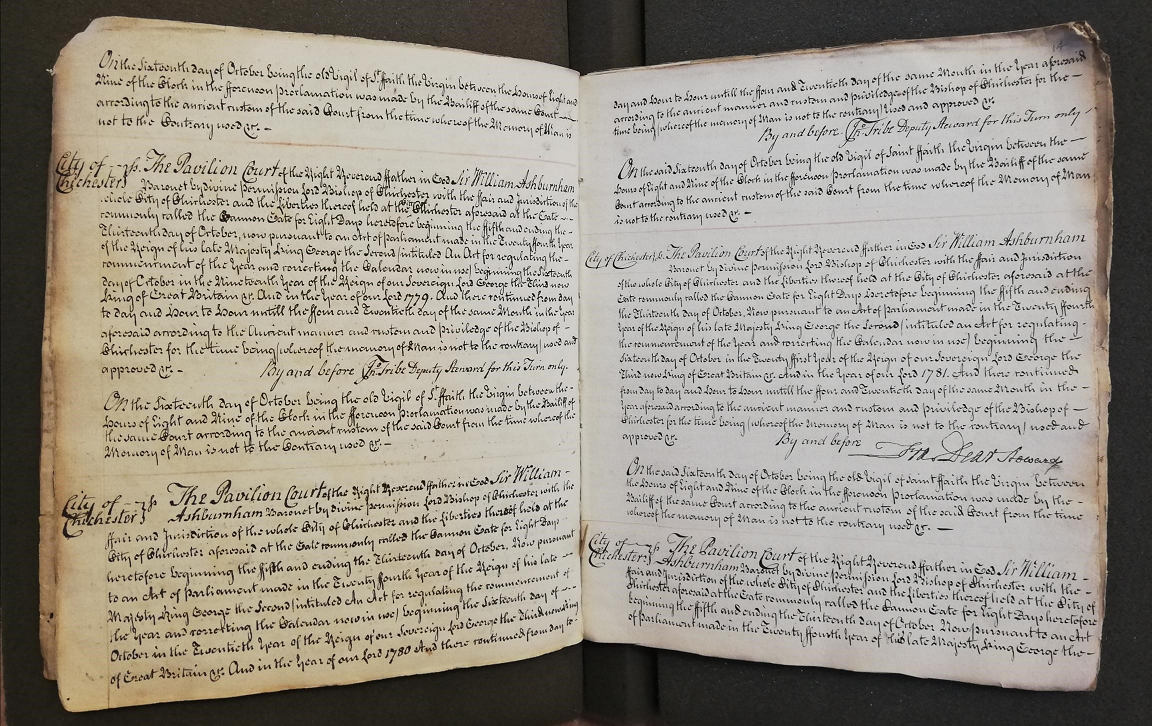 On the Sixteenth day of October being the old Vigil of St. ffaith the Virgin between the Hours of Eight and
Nine of the Clock in the fforenoon Proclamation was made by the Bailiff of the same Court
according to the ancient custom of the said Court from the time whereof the Memory of Man is
not to the Contrary used &c. —
City of
Chichester } ss. The Pavilion Court of the Right Reverend ffather in God Sir William Ashburnham
Baronet by divine Permission Lord Bishop of Chichester with the ffair and jurisdiction of the
whole City of Chichester and the Liberties thereof held at the City of Chichester aforesaid at the Gate —
commonly called the Cannon Gate for Eight Days heretofore beginning the fifth and ending the
Thirteenth day of October, now pursuant to an Act of Parliament made in the Twenty fourth Year
of the Reign of his late Majesty King George the Second (intituled An Act for regulating the —
commencement of the Year and correcting the Calendar now in use) beginning the Sixteenth
day of October in the Nineteenth Year of the Reign of our Sovereign Lord George the Third now
King of Great Britain &c. And in the Year of our Lord 1779. And there continued from day
to day and Hour to Hour untill the ffour and Twentieth day of the same Month in the Year
aforesaid according to the Ancient manner and custom and Priviledge of the Bishop of —
Chichester for the time being (whereof the memory of Man is not to the contrary) used and
approved &c. — By and before Jn.o Tribe Deputy Steward for this Turn only.
On the Sixteenth day of October being the old Vigil of St. ffaith the Virgin between the —
Hours of Eight and Nine of the Clock in the fforenoon Proclamation was made by the Bailiff of
the same Court according to the ancient custom of the said Court from the time whereof the
Memory of Man is not to the Contrary used &c. —
City of
Chichester } ss. The Pavilion Court of the Right Reverend ffather in God Sir William —
Ashburnham Baronet by divine Permission Lord Bishop of Chichester with the
ffair and Jurisdiction of the whole City of Chichester and the Liberties thereof held at the
City of Chichester aforesaid at the Gate commonly called the Cannon Gate for Eight Days
heretofore beginning the fifth and ending the Thirteenth day of October, Now pursuant
to an Act of Parliament made in the Twenty ffourth Year of the Reign of his late —
Majesty King George the Second (intituled An Act for regulating the commencement of
the Year and correcting the Calendar now in use) beginning the Sixteenth day of —
October in the Twentieth Year of the Reign of our Sovereign Lord George the Third now King
of Great Britain &c. And in the Year of our Lord 1780 And there continued from day to
14
day and Hour to Hour untill the ffour and Twentieth day of the same Month in the Year aforesaid
according to the ancient manner and custom and Priviledge of the Bishop of Chichester for the —
time being (whereof the memory of Man is not to the contrary) used and approved &c.
By and before Jn.o Tribe Deputy Steward for this Turn only —
On the said Sixteenth day of October being the old Vigil of Saint ffaith the Virgin between the —
Hours of Eight and Nine of the Clock in the fforenoon Proclamation was made by the Bailiff of the same
Court according to the ancient custom of the said Court from the time whereof the Memory of Man
is not to the contrary used &c. —
City of Chichester } ss. The Pavilion Court of the Right Reverend ffather in God Sir William Ashburnham
Baronet by divine Permission Lord Bishop of Chichester with the ffair and Jurisdiction
of the whole City of Chichester and the Liberties thereof held at the City of Chichester aforesaid at the
Gate commonly called the Cannon Gate for Eight Days heretofore beginning the ffifth and ending
the Thirteenth day of October, Now pursuant to an Act of Parliament made in the Twenty ffourth
Year of the Reign of his late Majesty King George the Second (intituled an Act for regulating —
the commencement of the Year and correcting the Calendar now in use) beginning the —
Sixteenth day of October in the Twenty ffirst Year of the Reign of our Sovereign Lord George the
Third now King of Great Britain &c. And in the Year of our Lord 1781. And there continued
from day to day and Hour to Hour untill the ffour and Twentieth day of the same Month in the —
Year aforesaid according to the ancient manner and custom and priviledge of the Bishop of —
Chichester for the time being (whereof the Memory of Man is not to the contrary) used and
approved &c. By and before Jn.o Dear Steward
On the said Sixteenth day of October being the old Vigil of Saint ffaith the Virgin between
the Hours of Eight and Nine of the Clock in the fforenoon Proclamation was made by the —
Bailiff of the same Court according to the ancient custom of the said Court from the time
whereof the memory of Man is not to the contrary used &c. —
City of
Chichester } ss. The Pavilion Court of the Right Reverend ffather in God Sir William —
Ashburnham Baronet by divine Permission Lord Bishop of Chichester with the —
ffair and Jurisdiction of the whole City of Chichester and the Liberties thereof held at the City of
Chichester aforesaid at the Gate commonly called the Cannon Gate for Eight Days heretofore
beginning the ffifth and ending the Thirteenth day of October Now pursuant to an Act
of Parliament made in the Twenty ffourth Year of his late Majesty King George the —